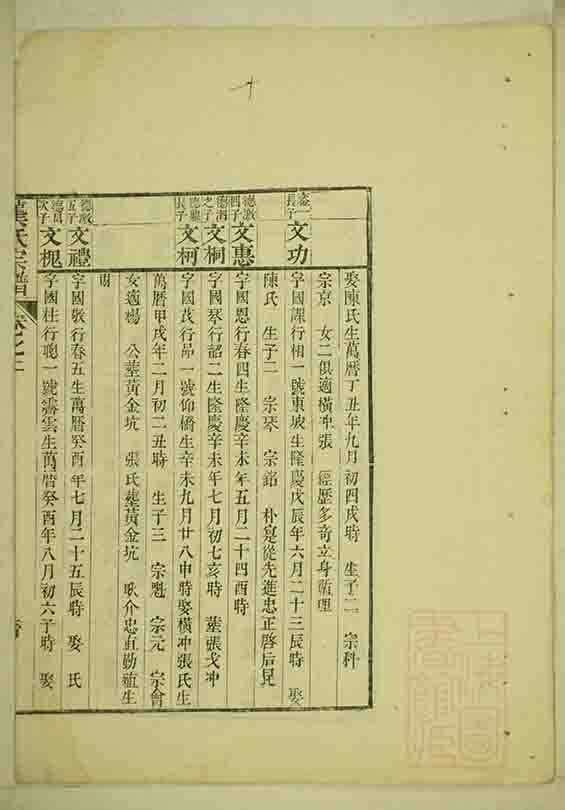 娶陳氏生萬曆丁丑年九月初四戌時 生子二 宗科
宗京 女二俱適橫冲張 經歷多奇立身循理
長子
文功
字國諜行相一號東坡生隆慶戊辰年六月二十三辰時 娶
陳氏 生子二 宗琴 宗銘 朴寔從先進忠正啓后昆
德敦四子
文惠
字國恩行春四生隆慶辛未年五月二十四酉時
之子
文桐
字國琴行韶二生隆慶辛未年七月初七亥時 葬張戈冲
長子
文柯
字國茂行昂一號仰橋生辛未九月廿八申時娶橫冲張氏生
萬曆甲戌年二月初二丑時 生子三 宗魁 宗元 宗會
女適楊 公葬黃金坑 張氏葬黃金坑 耿介忠直勤殖生
財
德敦五子
文禮
字國敬行春五生萬曆癸酉年七月二十五辰時 娶 氏
次子
文槐
字國柱行聰一號霽雲生萬曆癸酉年八月初六子時 娶
氏宗譜
卷之二